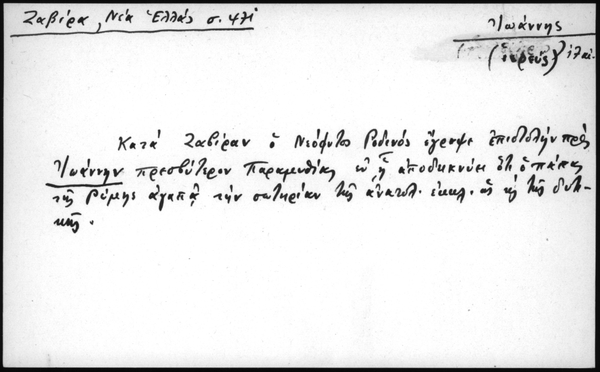 Ζαβίρα, Νέα Ἑλλάς σ.
Ἰωάννης
(ἱερεύς)
Κατά Ζαβίραν ὁ Νεόφυτος Ροδινός ἔγραψε ἐπιστολήν πρός
Ἰωάννην πρεσβύτερον Παραμυθίας ἐν ᾗ ἀποδεικνύει ὅτι ὁ πάπας
τῆς Ρώμης ἀγαπᾷ τήν σωτηρίαν τῆς ἀνατολ. ἐκκλ. ὡς κ τῆς δυτι-
κῆς.